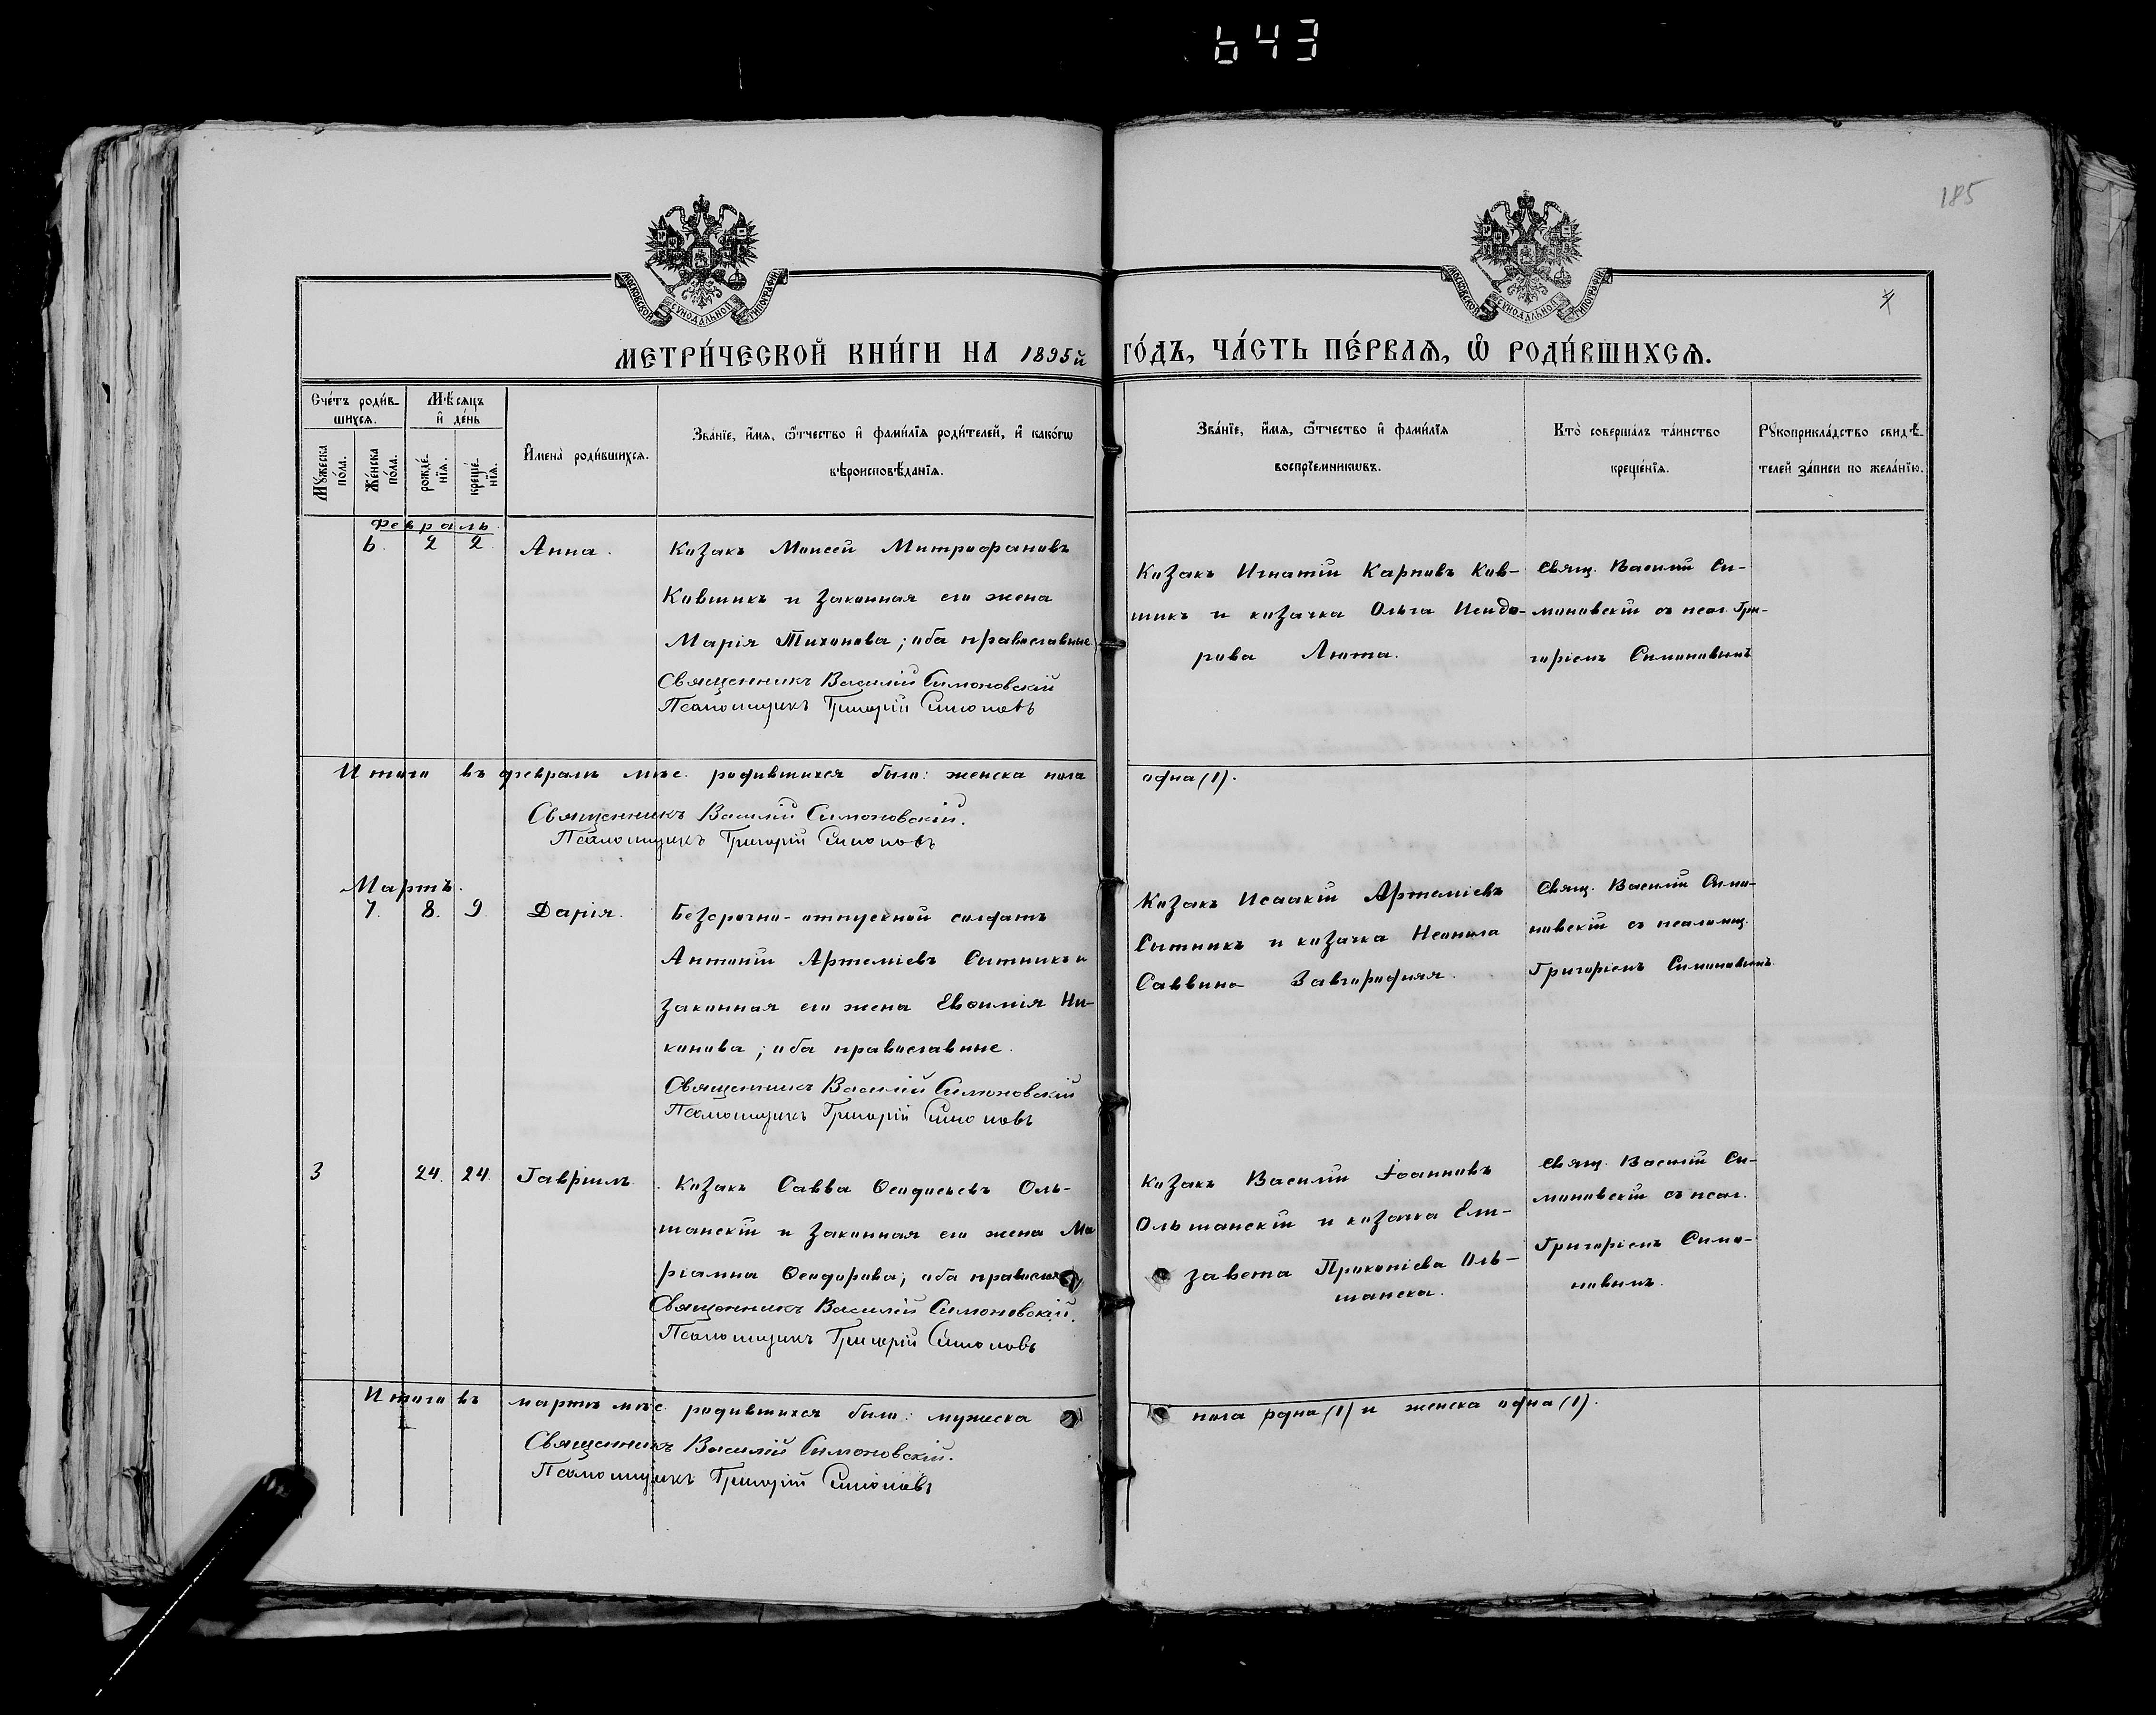 643
185
МОСКОВСКОЙ СѴНОДАЛЬНОЙ ТИПОГРАФІИ
МОСКОВСКОЙ СѴНОДАЛЬНОЙ ТИПОГРАФІИ
МЕТРИ́ЧЕСКОЙ КНИ́ГИ НА 1895й ГО́ДЪ, ЧА́СТЬ ПЕ́РВАѦ, Ѽ РОДИ́ВШИХСѦ.
Сче́тъ роди́в-
шихсѧ.
Мꙋ́жеска по́ла.
Же́нска по́ла.
Мѣ́сѧцъ
и҆ де́нь
рожде́-нїѧ.
креще́-нїѧ.
И҆мена̀ роди́вшихсѧ.
Зва́нїе, и҆́мѧ, ѻ҆́тчество и҆ фами́лїѧ роди́телей, и҆ како́гѡ
вѣроисповѣ́данїѧ.
Зва́нїе, и҆́мѧ, ѻ҆́тчество и҆ фами́лїѧ
воспрїе́мникѡвъ.
Кто̀ соверша́лъ та́инство
креще́нїѧ.
Рꙋкоприкла́дство свидѣ́-
телей за́писи по жела́нїю.
Февраль
6. 2 2. Анна.
Козакъ Моисей Митрофановъ
Ковшикъ и законная его жена
Марія Тихонова; оба православные
Священникъ Василій Симоновскій
Псаломщикъ Григорій Симоновъ
Козакъ Игнатій Карповъ Ков-
шикъ и козачка Ольга Исидо-
рова Люта.
Свящ. Василий Си-
моновскій съ псал. Гри-
горіемъ Симоновымъ
Итого въ февралѣ мѣс. родившихся было: женска пола одна (1).
Священникъ Василій Симоновскій.
Псаломщикъ Григорій Симоновъ
Мартъ.
7. 8. 9. Дарія.
Безсрочно-отпускной солдатъ
Антоній Артеміевъ Ситникъ и
законная его жена Евѳимія Ни-
конова; оба православные.
Священникъ Василій Симоновскій
Псаломщикъ Григорій Симоновъ
Козакъ Исаакій Артеміевъ
Ситникъ и козачка Неонила
Саввина Завгородняя.
Свящ. Василій Симо-
новскій съ псаломщ.
Григоріемъ Симоновымъ.
3 24. 24. Гавріилъ.
Козакъ Савва Ѳеодосьевъ Оль-
шанскій и законная его жена Ма
ріанна Ѳеодорова; оба правосл
Священникъ Василій Симоновскій.
Псаломщикъ Григорій Симоновъ
Козакъ Василій Іоанновъ
Ольшанскій и козачка Ели-
завета Прокопіева Оль-
шанска.
Свящ. Василій Си-
моновскій съ псал.
Григоріемъ Симо-
новымъ.
Итого въ мартѣ мѣс. родившихся было: мужеска пола одна (1) и женска одна (1).
Священникъ Василій Симоновскій.
Псаломщикъ Григорій Симоновъ